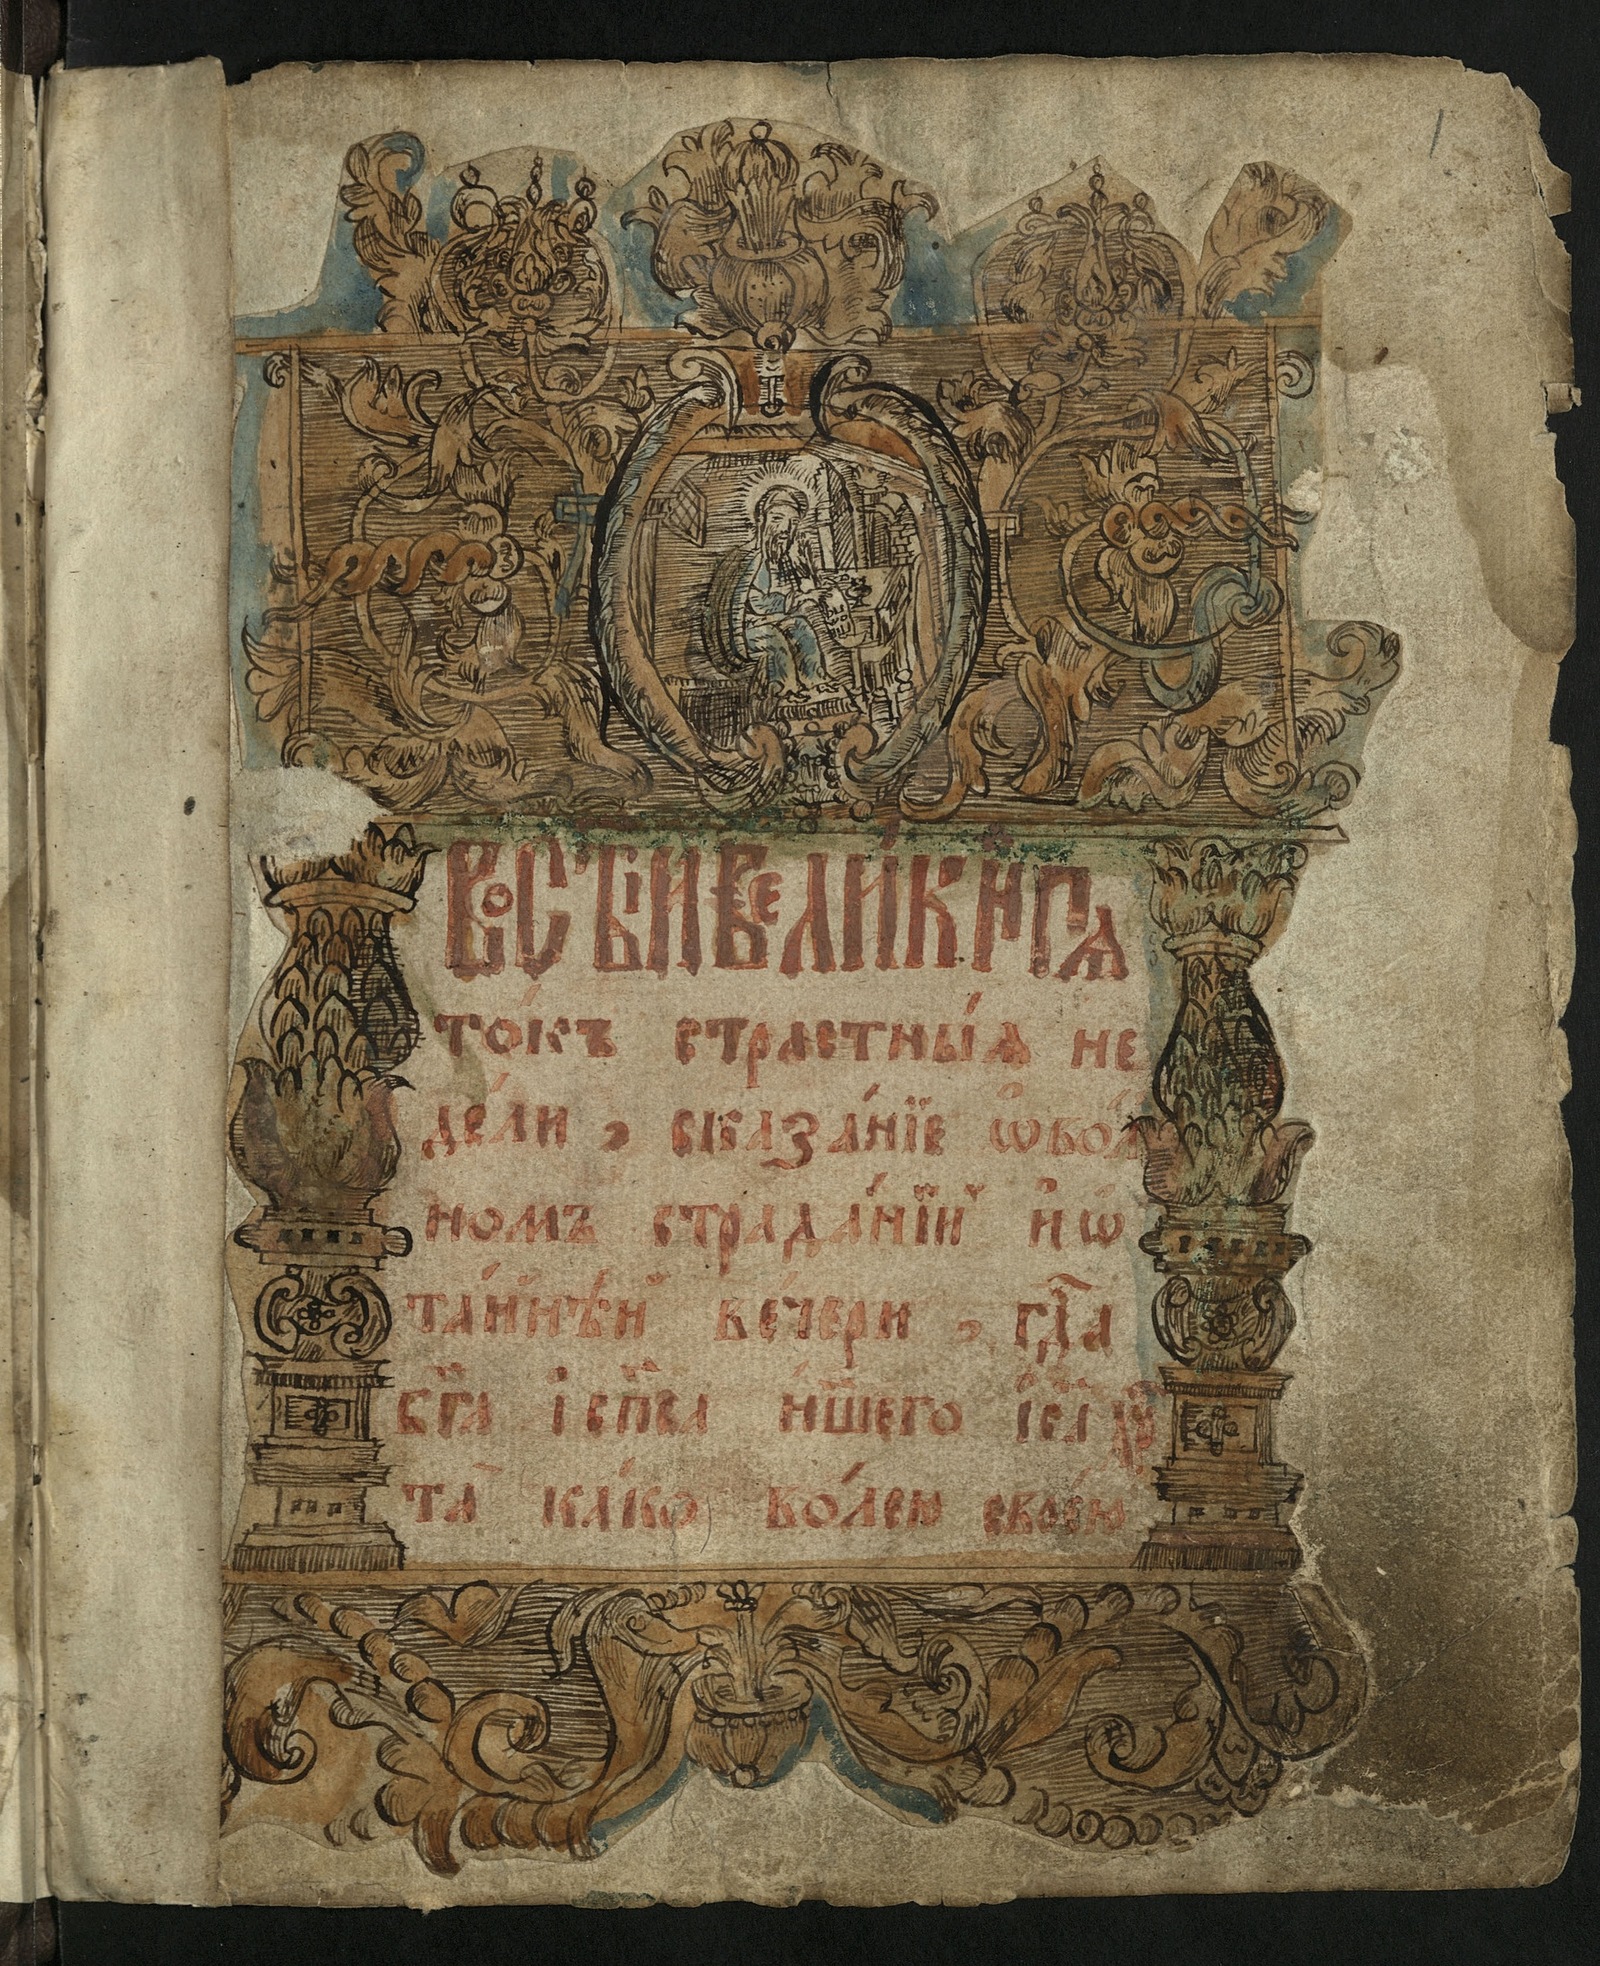 Во ст҃ы́и вели́кїй пѧ
то́къ страстны́ѧ не
дѣ́ли , сказа́нїе ѡ во́л
номъ страда́нїи и҆ ѡ
та́йнѣй ве́чери , гдⷭ҇а
бг҃а і сп҃са на́шего і҆с҃а хрⷭ҇
та̀ ка́кѡ во́лею своею